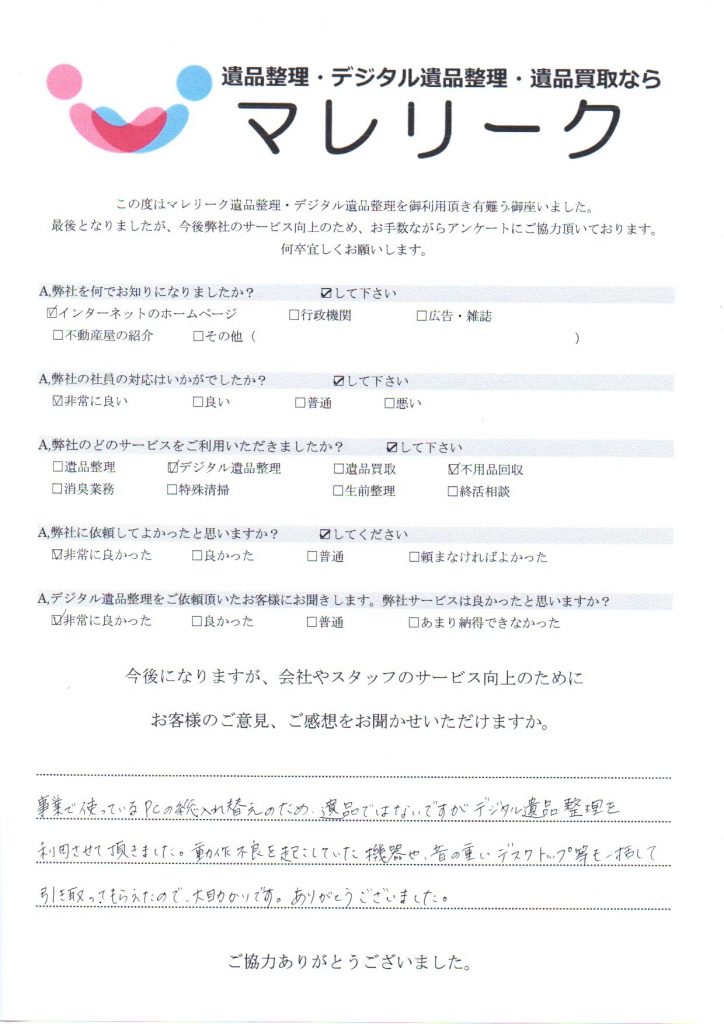 遺品整理・デジタル遺品整理・遺品買取なら
マレリーク
この度はマレリーク遺品整理・デジタル遺品整理を御利用頂き有難う御座いました。
最後となりましたが、今後弊社のサービス向上のため、お手数ながらアンケートにご協力頂いております。
何卒宜しくお願いします。
A,弊社を何でお知りになりましたか？ ☑して下さい
☑インターネットのホームページ □行政機関 □広告・雑誌
□不動産屋の紹介 □その他（ ）
A,弊社の社員の対応はいかがでしたか？ ☑して下さい
☑非常に良い □良い □普通 □悪い
A,弊社のどのサービスをご利用いただきましたか？ ☑して下さい
□遺品整理 ☑デジタル遺品整理 □遺品買取 ☑不用品回収
□消臭業務 □特殊清掃 □生前整理 □終活相談
A,弊社に依頼してよかったと思いますか？ ☑してください
☑非常に良かった □良かった □普通 □頼まなければよかった
A,デジタル遺品整理をご依頼頂いたお客様にお聞きします。弊社サービスは良かったと思いますか？
☑非常に良かった □良かった □普通 □あまり納得できなかった
今後になりますが、会社やスタッフのサービス向上のために
お客様のご意見、ご感想をお聞かせいただけますか。
事業で使っているPCの総入れ替えのため、遺品ではないですがデジタル遺品整理を
利用させて頂きました。動作不良を起こしていた機器や、昔の重いデスクトップ等も一括して
引き取ってもらえたので、大助かりです。ありがとうございました。
ご協力ありがとうございました。